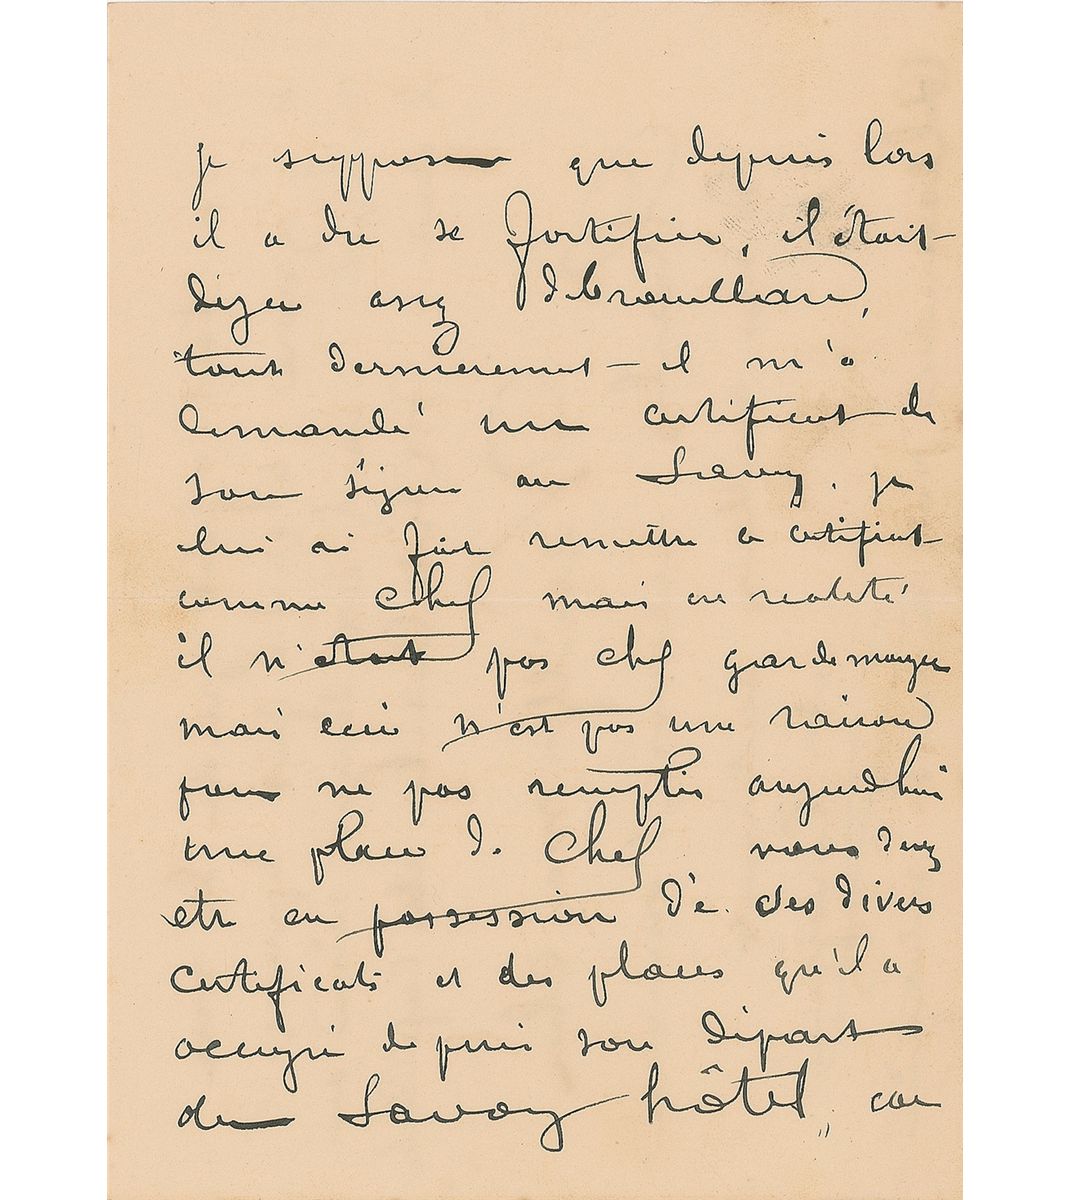 je suppose que depuis lors
il a du se fortifier, il était
déja assez débrouillard,
tout dernierement il m'a
demandé un certificat de
son séjour au Savoy, je
lui ai fait remettre ce certificat
comme chef mais en realité
il n'était pas chef garde manger
mais ceci n'est pas une raison
pour ne pas remplir aujourd'hui
une place de chef vous devez
etre en possession de ces divers
certificats et des places qu'il a
occupé depuis son départ
du Savoy hôtel, car